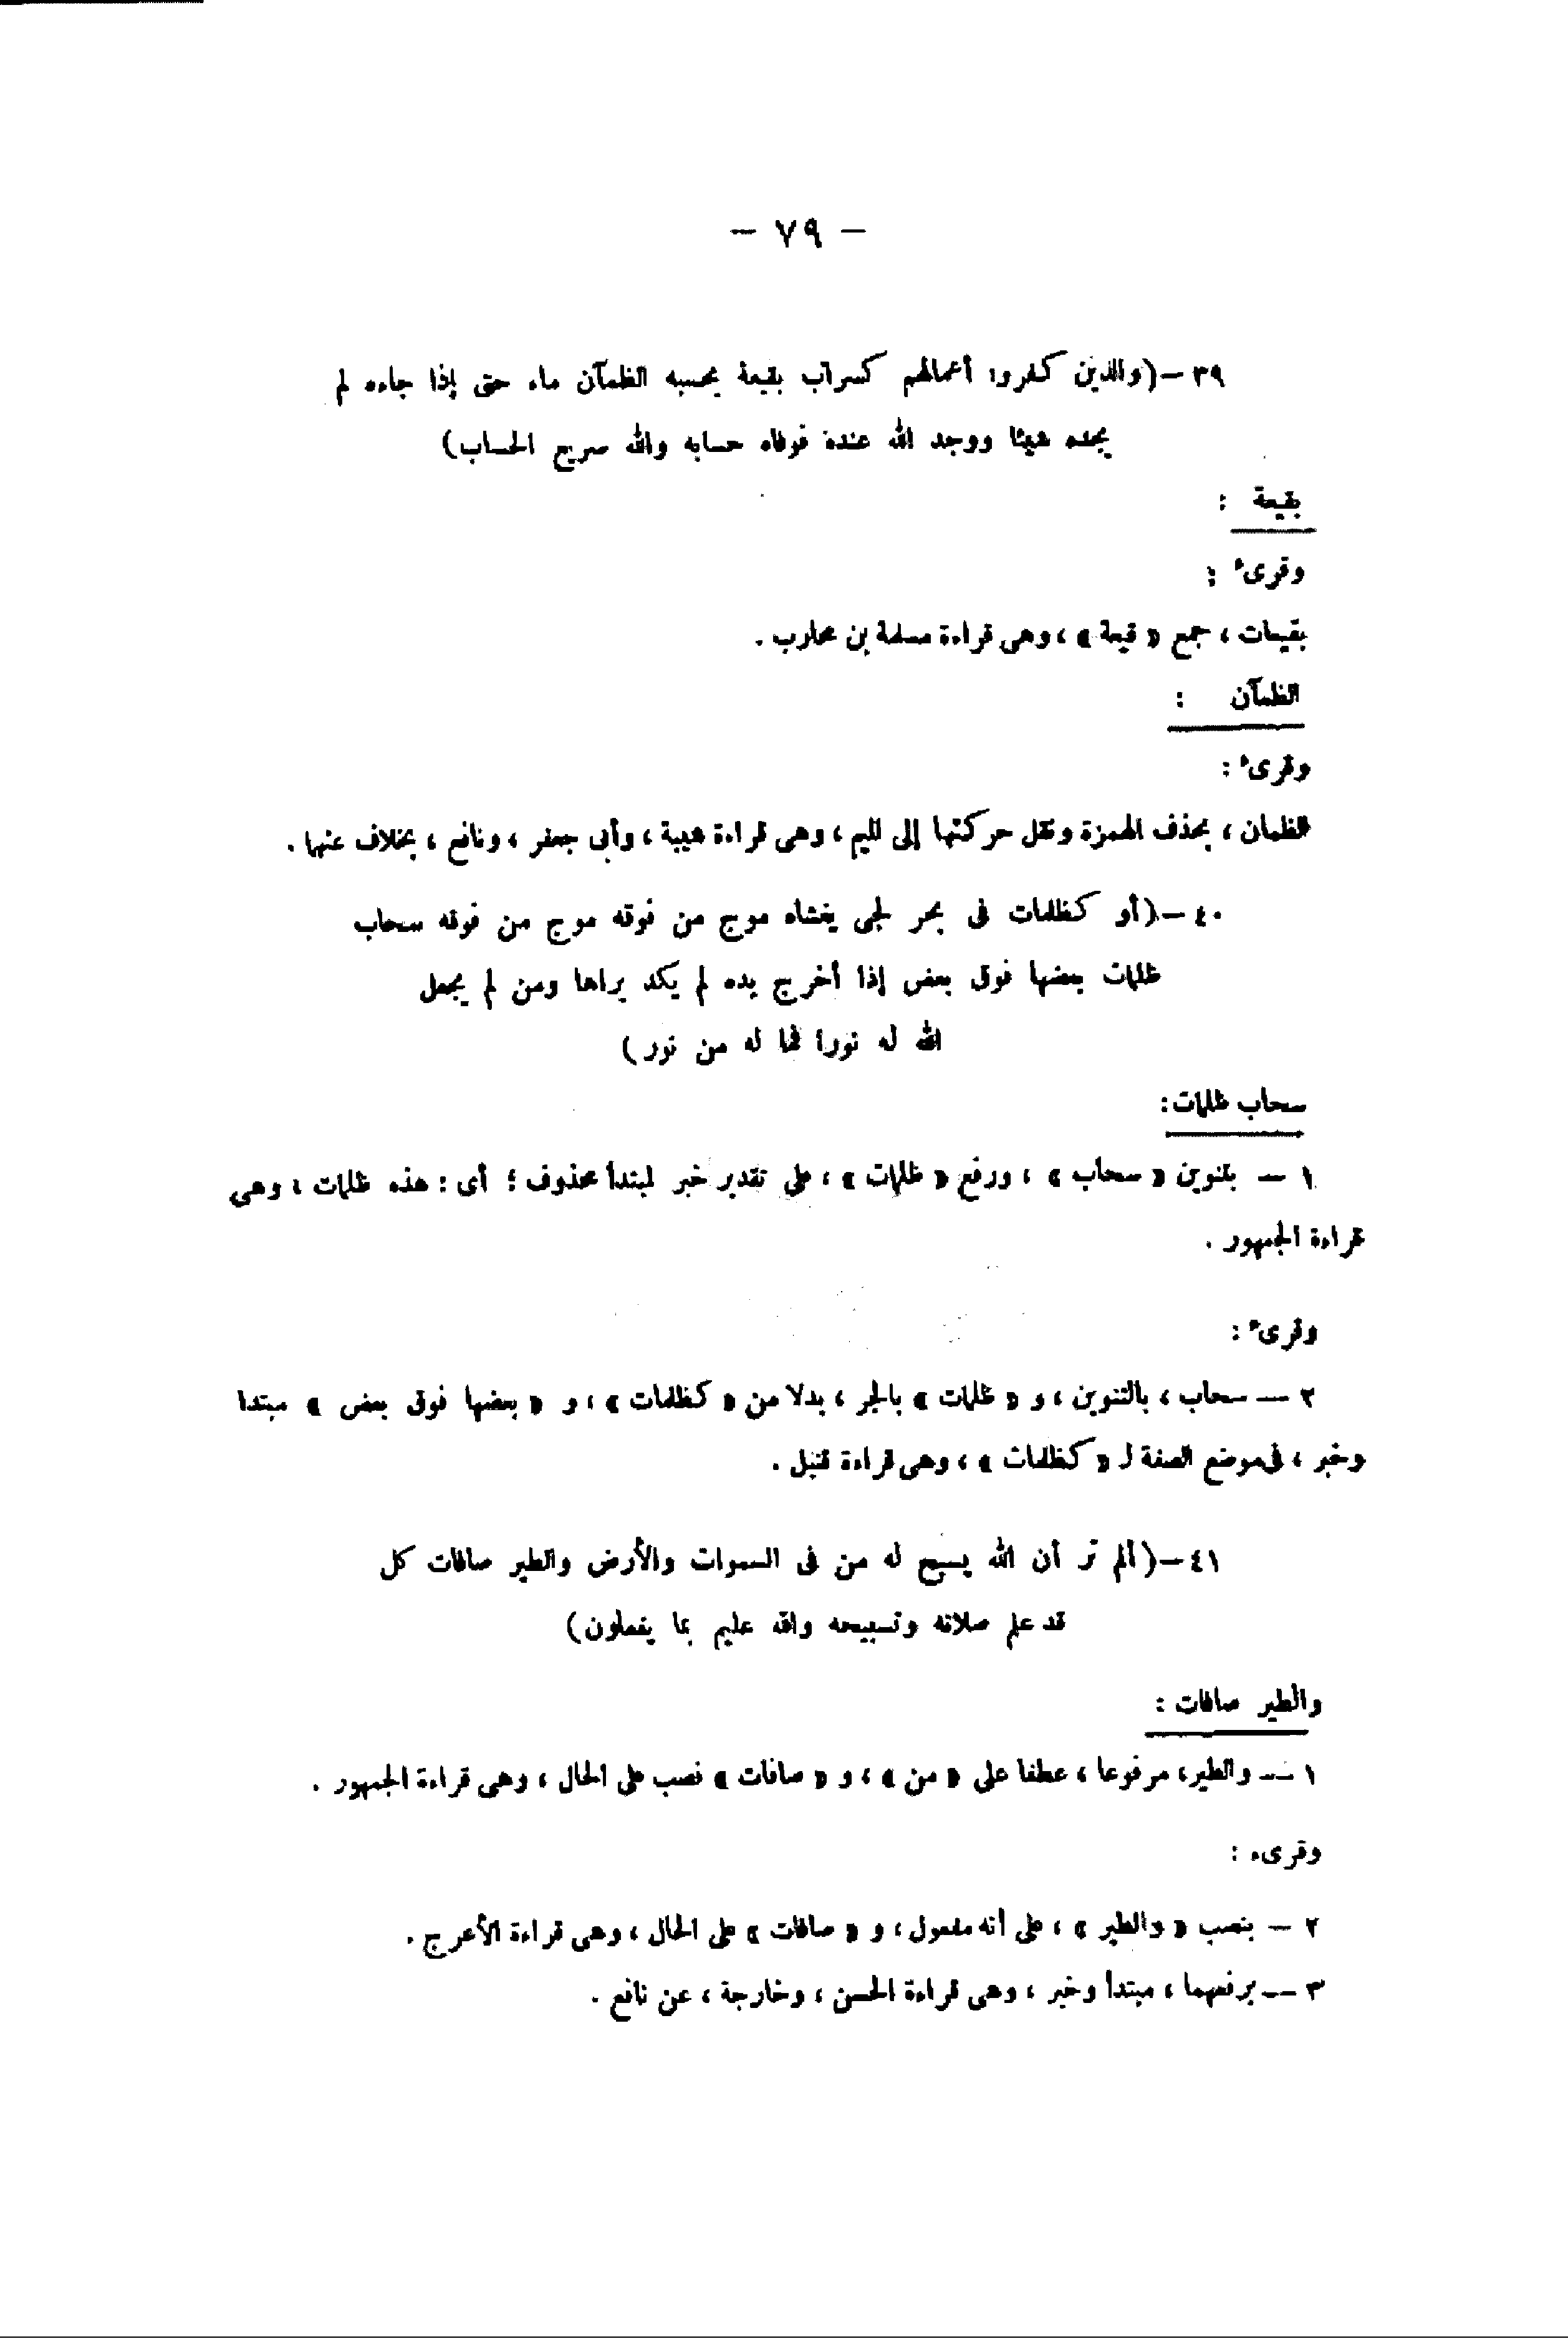 — ٧٩ —
٣٩ — (والذين كفروا أعمالهم كسراب بقيعة يحسبه الظمآن ماء حتى إذا جاءه لم
يجده شيئا ووجد الله عنده فوفاه حسابه والله سريع الحساب)
بقيعة :
وقرىء :
بقيعات ، جمع « قيعة » ، وهى قراءة مسلمة بن محارب .
الظمآن :
وقرىء :
الظمان ، بحذف الهمزة ونقل حركتها إلى الميم ، وهى قراءة شيبة ، وأبى جعفر ، ونافع ، بخلاف عنهما .
٤٠ — (أو كظلمات فى بحر لجى يغشاه موج من فوقه موج من فوقه سحاب
ظلمات بعضها فوق بعض إذا أخرج يده لم يكد يراها ومن لم يجعل
الله له نورا فما له من نور)
سحاب ظلمات :
١ — بتنوين « سحاب » ، ورفع « ظلمات » ، على تقدير خبر لمبتدأ محذوف ؛ أى : هذه ظلمات ، وهى
قراءة الجمهور .
وقرىء :
٢ — سحاب ، بالتنوين ، و « ظلمات » بالجر ، بدلا من « كظلمات » ، و « بعضها فوق بعض » مبتدا
وخبر ، فى موضع الصفة لـ « كظلمات » ، وهى قراءة قنبل .
٤١ — (ألم تر أن الله يسبح له من فى السموات والأرض والطير صافات كل
قد علم صلاته وتسبيحه والله عليم بما يفعلون)
والطير صافات :
١ — والطير ، مرفوعا ، عطفا على « من » ، و « صافات » نصب على الحال ، وهى قراءة الجمهور .
وقرىء :
٢ — بنصب « والطير » ، على أنه مفعول ، و « صافات » على الحال ، وهى قراءة الأعرج .
٣ — برفعهما ، مبتدأ وخبر ، وهى قراءة الحسن ، وخارجة ، عن نافع .